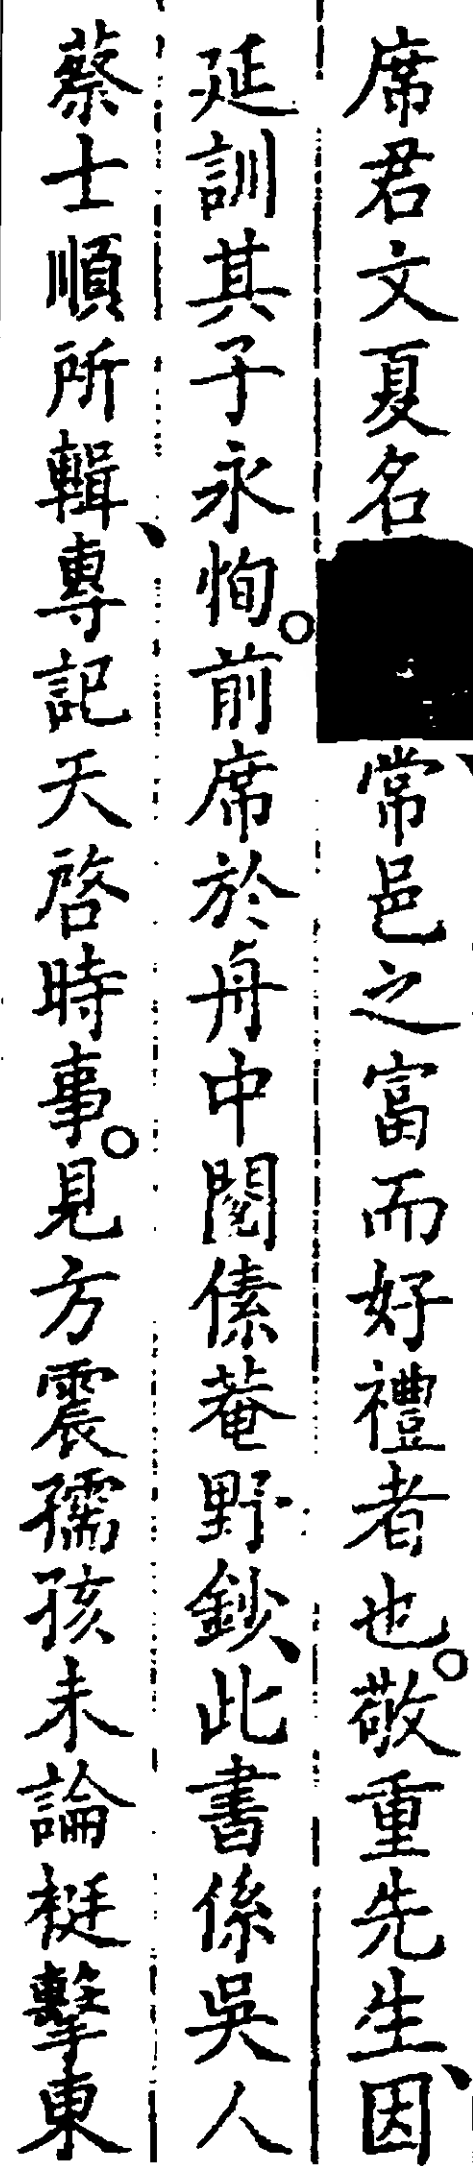 席君文夏名■■常邑之富而好禮者也。敬重先生、因
延訓其子永恂。前席於舟中閱傃菴野鈔、此書係吳人
蔡士順所輯、專記天啓時事。見方震孺孩未論梃擊東